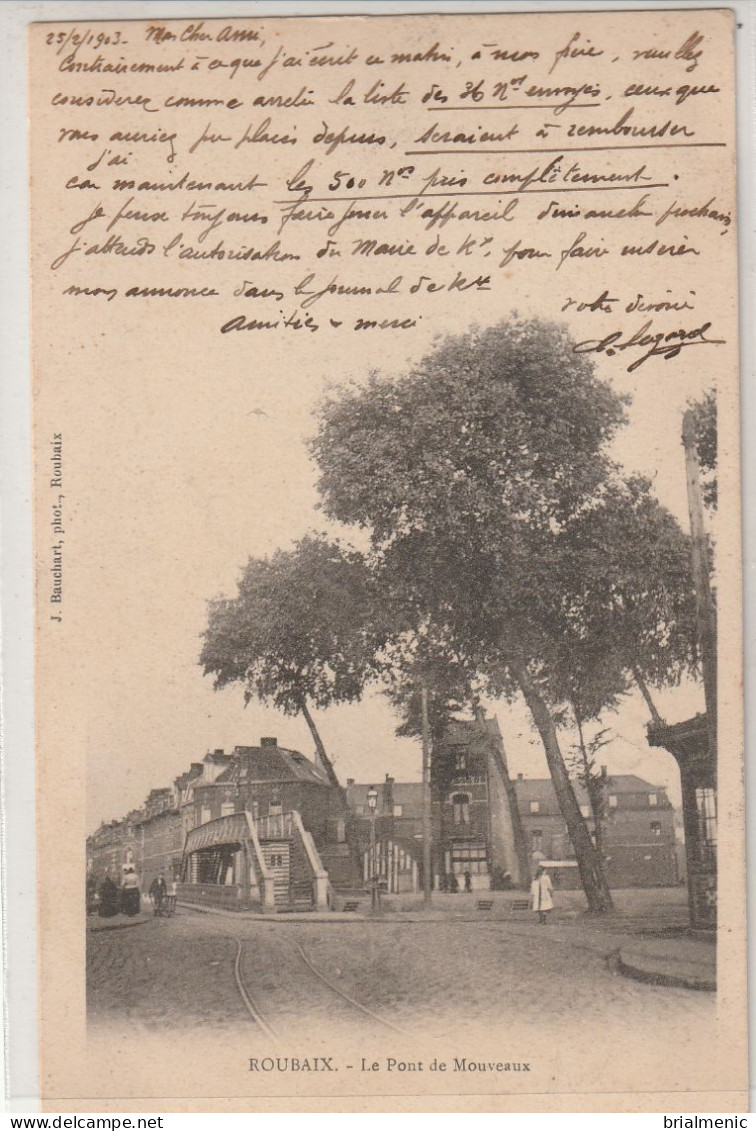 25/2/1903. Mon Cher Ami,
Contrairement à ce que j'ai écrit ce matin, à mon frère, veuillez
considérer comme arrêtée la liste des 36 Nos envoyés, ceux que
vous auriez pu placés depuis, seraient à rembourser
j'ai
car maintenant les 500 Nos pris complètement.
Je peux toujours faire jouer l'appareil dimanche prochain,
j'attends l'autorisation du Maire de pour faire insérer
mon annonce dans le journal de
Amitiés & merci
votre dévoué
J. Bauchart, phot., Roubaix
ROUBAIX. - Le Pont de Mouveaux
brialmenic